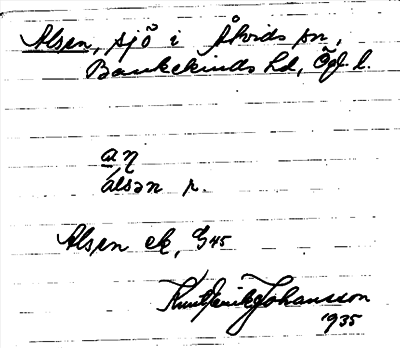 Alsen, sjö i Åtvids sn,
Bankekinds hd, Ögl l.
a η
álsən r.
Alsen ek, G45
Knut Henrik Johansson
1935